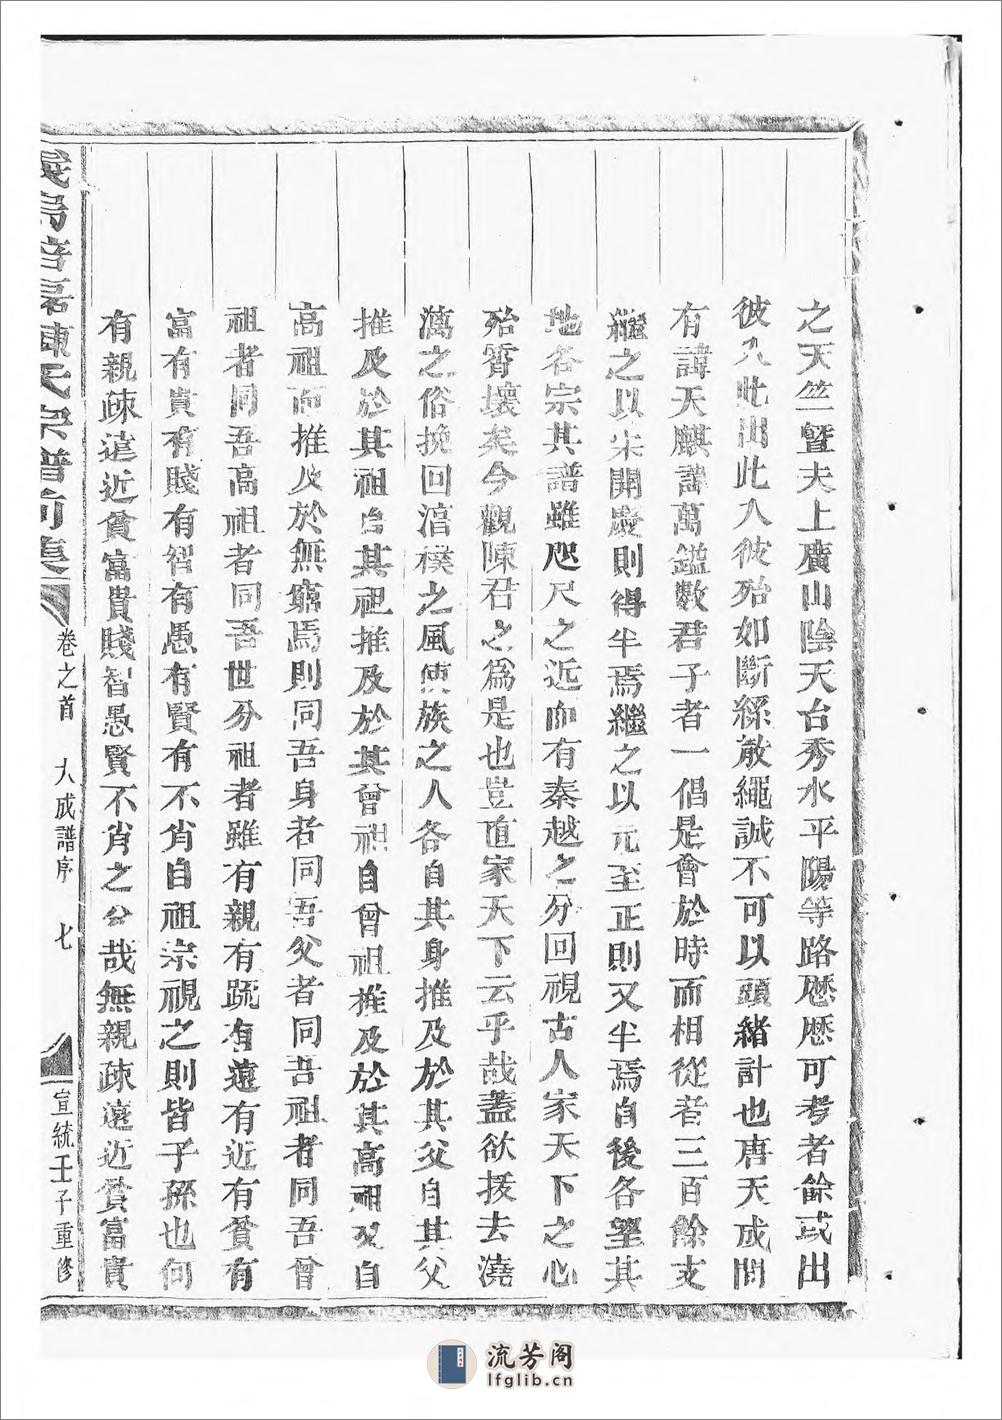 之天竺暨夫上廣山陰天台秀水平陽等路歷歷可考者餘或出
彼入此出此入彼殆如斷絲散繩誠不可以頭緒計也唐天成間
有諱天麒諱萬鎰數君子者一倡是會於時而相從者三百餘支
繼之以宋開慶則得半焉繼之以元至正則又半焉自後各望其
地各宗其譜雖咫尺之近而有秦越之分回視古人家天下之心
殆霄壤矣今觀陳君之爲是也豈直家天下云乎哉蓋欲援去澆
漓之俗挽回淳樸之風使族之人各自其身推及於其父自其父
推及於其祖自其祖推及於其曾祖自曾祖推及於其高祖又自
高祖而推及於無窮焉則同吾身者同吾父者同吾祖者同吾曾
祖者同吾高祖者同吾世分祖者雖有親有疏有遠有近有貧有
富有貴有賤有智有愚有賢有不肖自祖宗視之則皆子孫也何
有親疎遠近貧富貴賤智愚賢不肖之分哉無親疎遠近貧富貴
陳氏宗譜前集 卷之首 大成譜序 七 宣統壬子重修
流芳阁
lfglib.cn